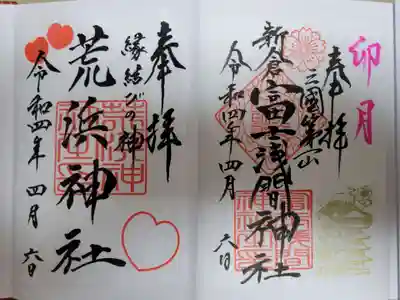 卯月
奉拝
三國第一山
新倉富士浅間神社
令和四年四月六日
奉拝
縁結びの神
荒浜神社
令和四年四月六日